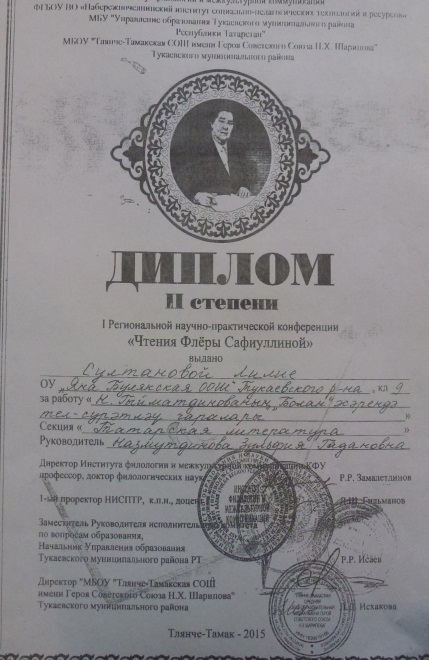 и межкультурной коммуникации
ФГБОУ ВО «Набережночелнинский институт социально-педагогических технологий и ресурсов»
МБУ "Управление образования Тукаевского муниципального района
Республики Татарстан"
МБОУ "Тлянче-Тамакская СОШ имени Героя Советского Союза Н.Х. Шарипова"
Тукаевского муниципального района
ДИПЛОМ
II степени
I Региональной научно-практической конференции
«Чтения Флёры Сафиуллиной»
выдано
Султановой Лилие
ОУ „Яна Булякская ООШ" Тукаевского р-на, кл 9
за работу « Н. Гыйматдинованың „Болан" әсәрендә
тел-сурәтләү чаралары »
Секция « Татарская литература »
Руководитель Назмутдинова Зульфия Гадановна
Директор Института филологии и межкультурной коммуникации КФУ
профессор, доктор филологических наук Р.Р. Замалетдинов
1-ый проректор НИСПТР, к.п.н., доцент Гильманов
Заместитель Руководителя исполнительного комитета
по вопросам образования,
Начальник Управления образования
Тукаевского муниципального района РТ Р.Р. Исаев
Директор "МБОУ "Тлянче-Тамакская СОШ
имени Героя Советского Союза Н.Х. Шарипова"
Тукаевского муниципального района Исхакова
Тлянче-Тамак - 2015